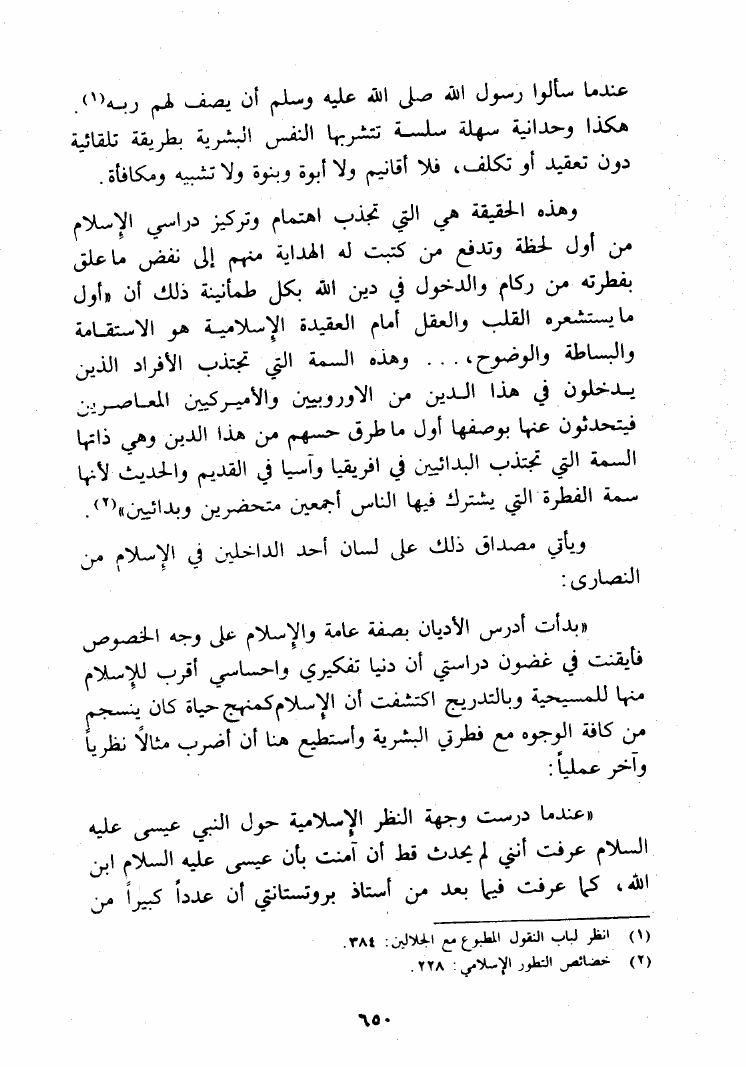 عندما سألوا رسول الله صلى الله عليه وسلم أن يصف لهم ربه(١).
هكذا وحدانية سهلة سلسة تتشربها النفس البشرية بطريقة تلقائية
دون تعقيد أو تكلف، فلا أقانيم ولا أبوة وبنوة ولا تشبيه ومكافأة.
وهذه الحقيقة هي التي تجذب اهتمام وتركيز دراسي الإسلام
من أول لحظة وتدفع من كتبت له الهداية منهم إلى نفض ما علق
بفطرته من ركام والدخول في دين الله بكل طمأنينة ذلك أن «أول
ما يستشعره القلب والعقل أمام العقيدة الإسلامية هو الاستقامة
والبساطة والوضوح، . . . وهذه السمة التي تجتذب الأفراد الذين
يدخلون في هذا الدين من الاوروبيين والأميركيين المعاصرين
فيتحدثون عنها بوصفها أول ما طرق حسهم من هذا الدين وهي ذاتها
السمة التي تجتذب البدائيين في افريقيا وآسيا في القديم والحديث لأنها
سمة الفطرة التي يشترك فيها الناس أجمعين متحضرين وبدائيين»(٢).
ويأتي مصداق ذلك على لسان أحد الداخلين في الإسلام من
النصارى:
«بدأت أدرس الأديان بصفة عامة والإسلام على وجه الخصوص
فأيقنت في غضون دراستي أن دنيا تفكيري واحساسي أقرب للإسلام
منها للمسيحية وبالتدريج اكتشفت أن الإسلام كمنهج حياة كان ينسجم
من كافة الوجوه مع فطرتي البشرية وأستطيع هنا أن أضرب مثالاً نظرياً
وآخر عملياً:
«عندما درست وجهة النظر الإسلامية حول النبي عيسى عليه
السلام عرفت أنني لم يحدث قط أن آمنت بأن عيسى عليه السلام ابن
الله، كما عرفت فيما بعد من أستاذ بروتستانتي أن عدداً كبيراً من
(١) انظر لباب النقول المطبوع مع الجلالين: ٣٨٤.
(٢) خصائص التطور الإسلامي: ٢٢٨.
٦٥٠